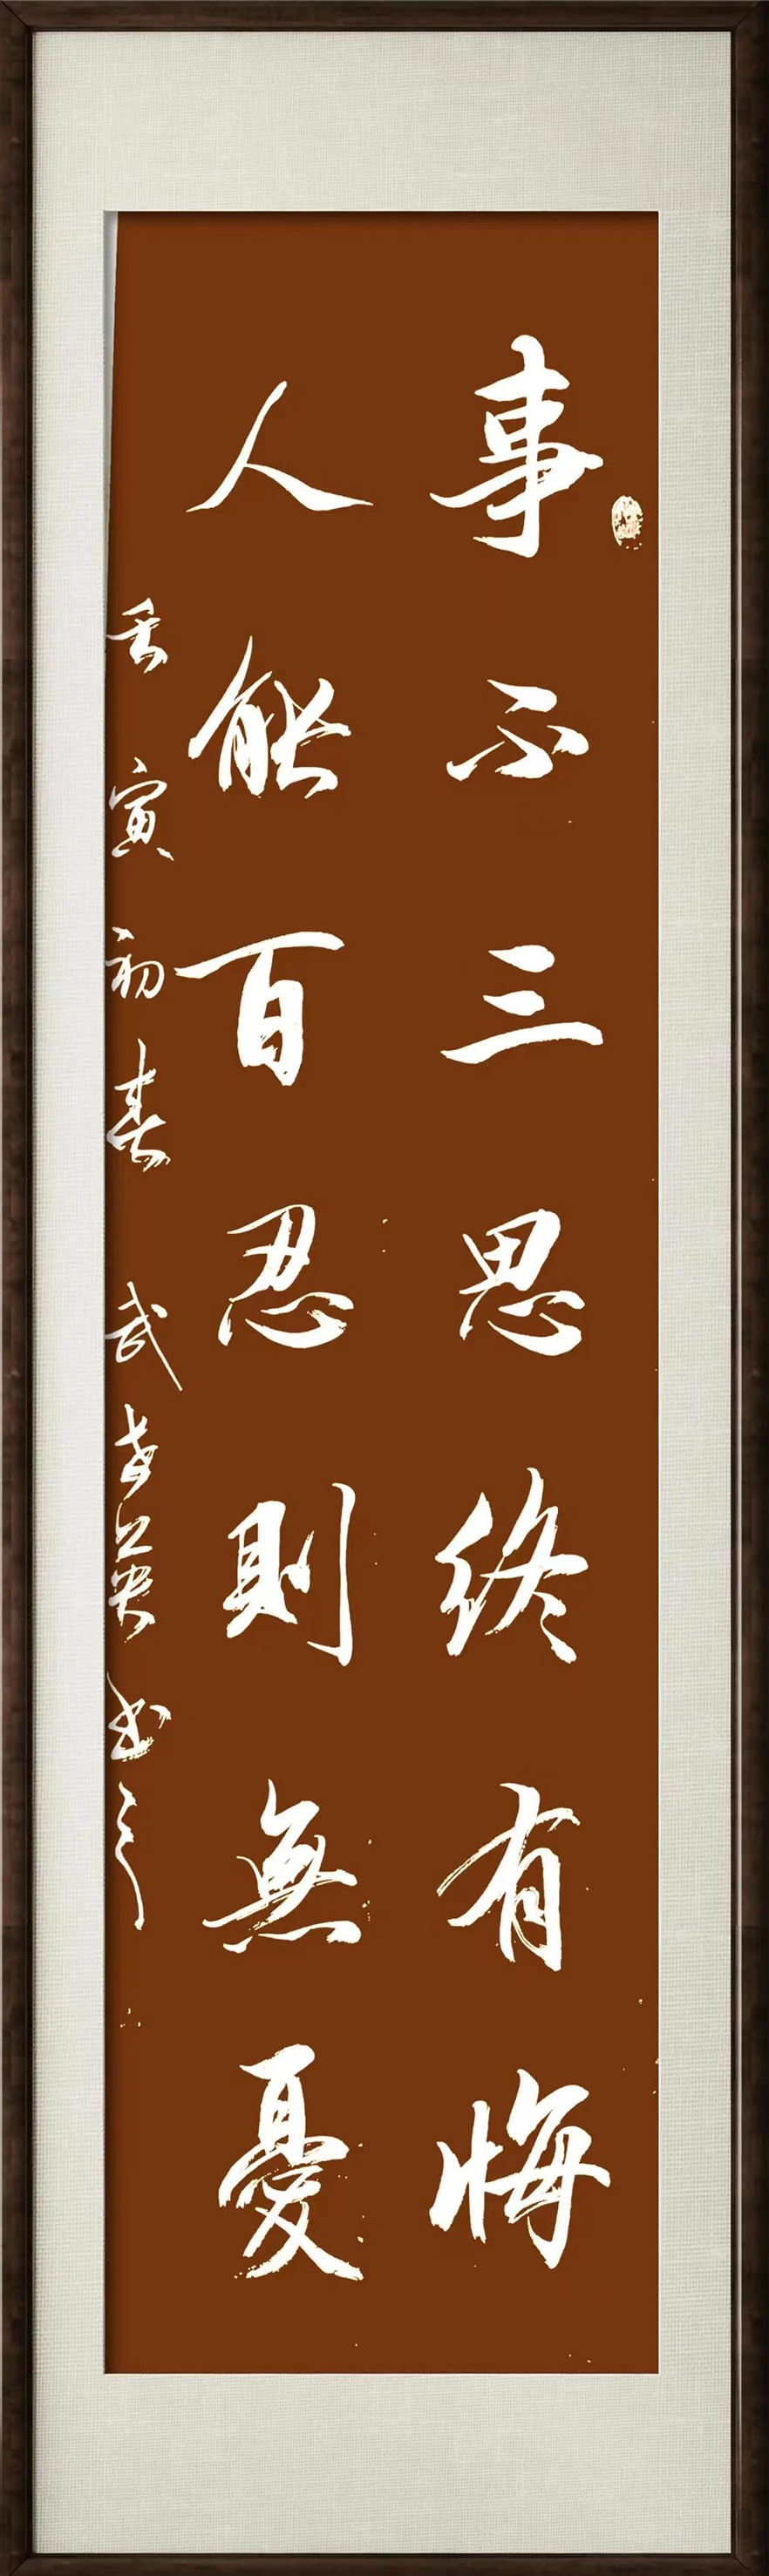 事不三思終有悔
人能百忍則無憂
壬寅初春 武 英書